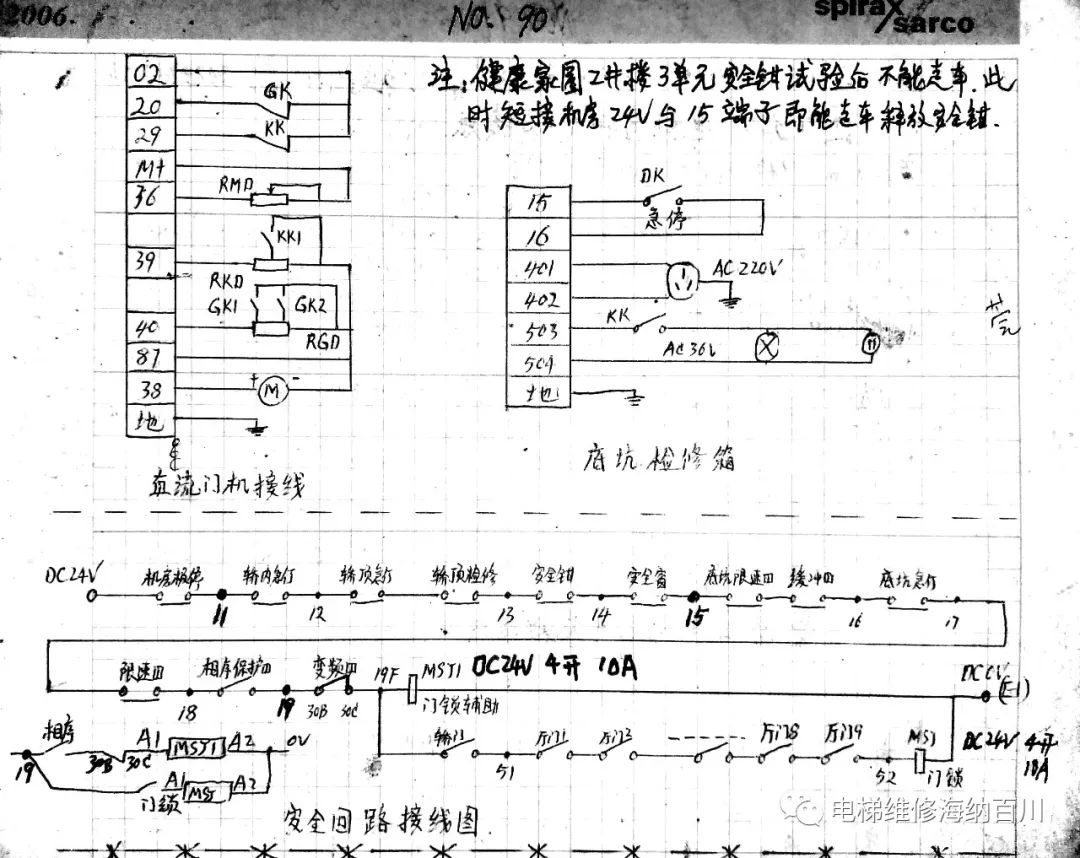 2006.
NO. 90
spirax
sarco
注:健康家園2井楼3单元安全钳试验后不能走车.此
时短接机房24V与15端子即能走车释放安全钳.
02
20
29
M+
36
39
40
87
38
地
GK
KK
RMD
KK1
RKD
GK1
GK2
RGD
+
M
-
直流门机接线
15
16
401
402
503
504
地
DK
急停
AC220V
KK
AC36V
底坑检修箱
DC24V
机房极停
轿内急停
轿顶急停
轿顶检修
安全钳
安全窗
底坑限速
缓冲
底坑急停
11
12
13
14
15
16
17
限速
相序保护
变频
19F
MSJ1
DC24V 4开 10A
DC0V
(E1)
18
19
30B
30C
门锁辅助
轿门
厅门1
厅门2
厅门8
厅门9
MSJ
DC24V 4开
10A
51
52
门锁
相序
19
30B
30C
A1
MSJ1
A2
0V
A1
MSJ
A2
门锁
安全回路接线图
电梯维修海纳百川